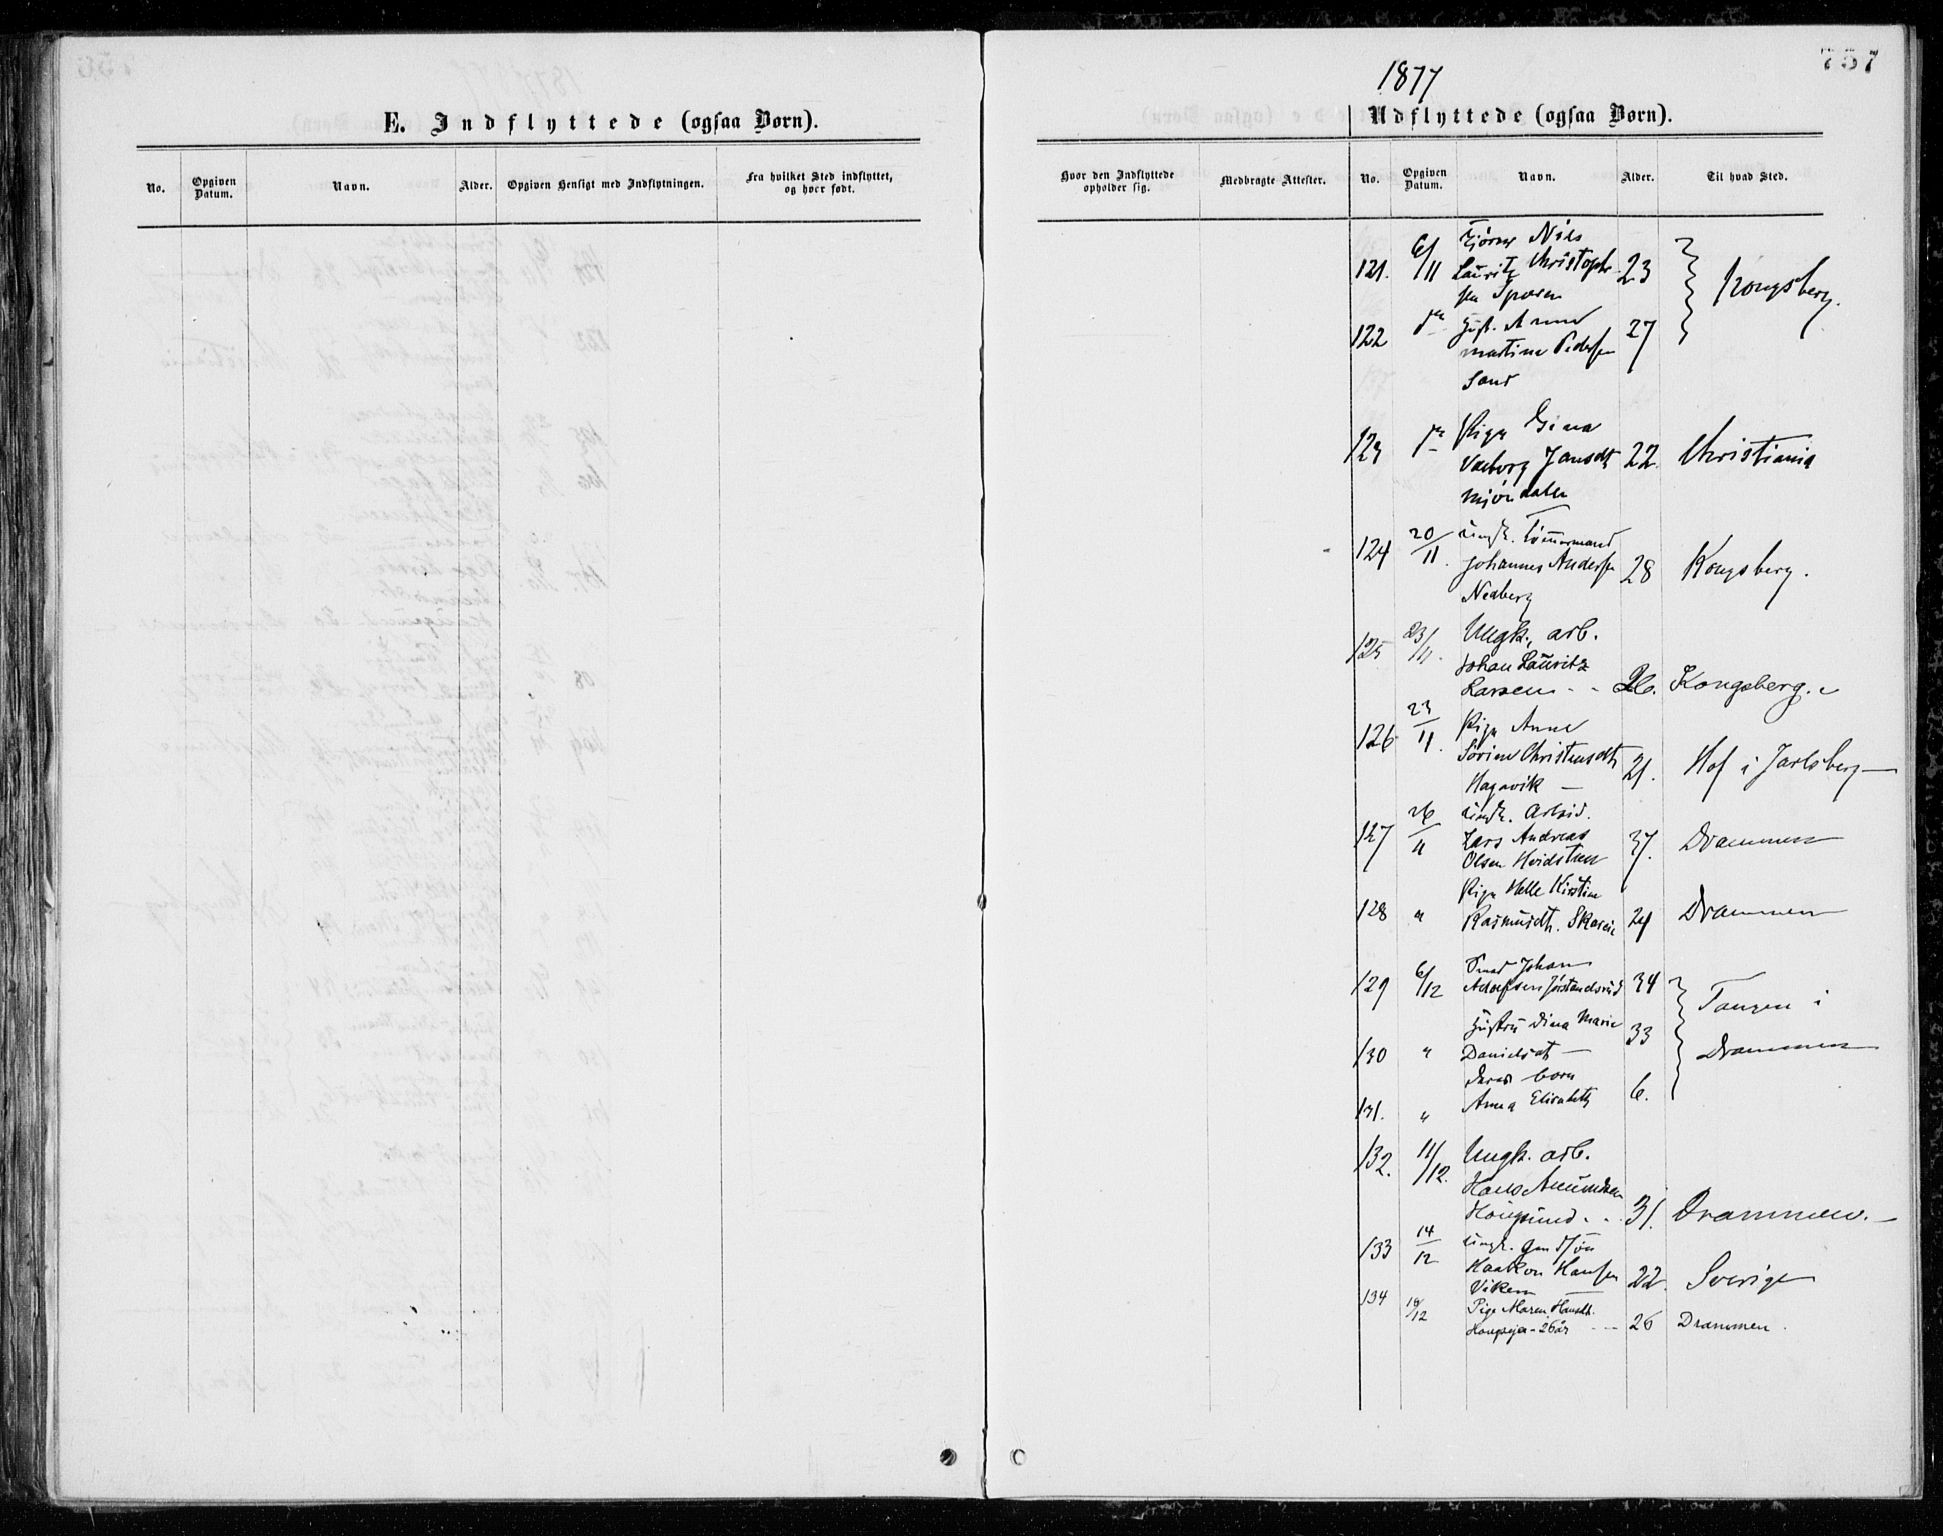 E. Indflyttede (ogsaa Børn).
No. Opgiven Datum. Navn. Alder. Opgiven Hensigt med Indflytningen. Fra hvilket Sted indflyttet, og hvor født.
757
1877
Udflyttede (ogsaa Børn).
Hvor den Indflyttede opholder sig. Medbragte Attester. No. Opgiven Datum. Navn. Alder. Til hvad Sted.
Nils
121. 6/11 Lauritz Christoph 23 Kongsberg.
sen
122 Anne 27
martine Pedersen
Sand
123 Pige Gina
Valborg Jansdt 22. Christiania
Mjøndalen
124 20/11. Ungk. Tømmermand
Johannes Andersen 28 Kongsberg.
Nedberg
125 23/11. Ungk. arb.
Johan Lauritz
Larsen - - 26. Kongsberg.
126 23/11. Pige Anne
Sørine Christensdt 21. Hof i Jarlsberg
Hagavik —
127 26/11 Ungk. Arbeid.
Lars Andreas 37. Drammen
Olsen Hvidsteen
Pige Helle Kirstine
128 " Rasmusdt. 24 Drammen
Johan
129 6/12 34 Tangen i
Hustru Dina Marie 33
130 " Danielsdt — Drammen
deres born
131. " Anna Elisabeth 6.
132. 11/12. Ungk. arb.
Hans Amundsen
Hougsund. - - 31. Drammen. —
133 14/12 Ungk.
Haakon Hansen 22. Sverige
Viken
134 18/12 Pige Maren Hansdt.
- 26 år - - 26 Drammen.